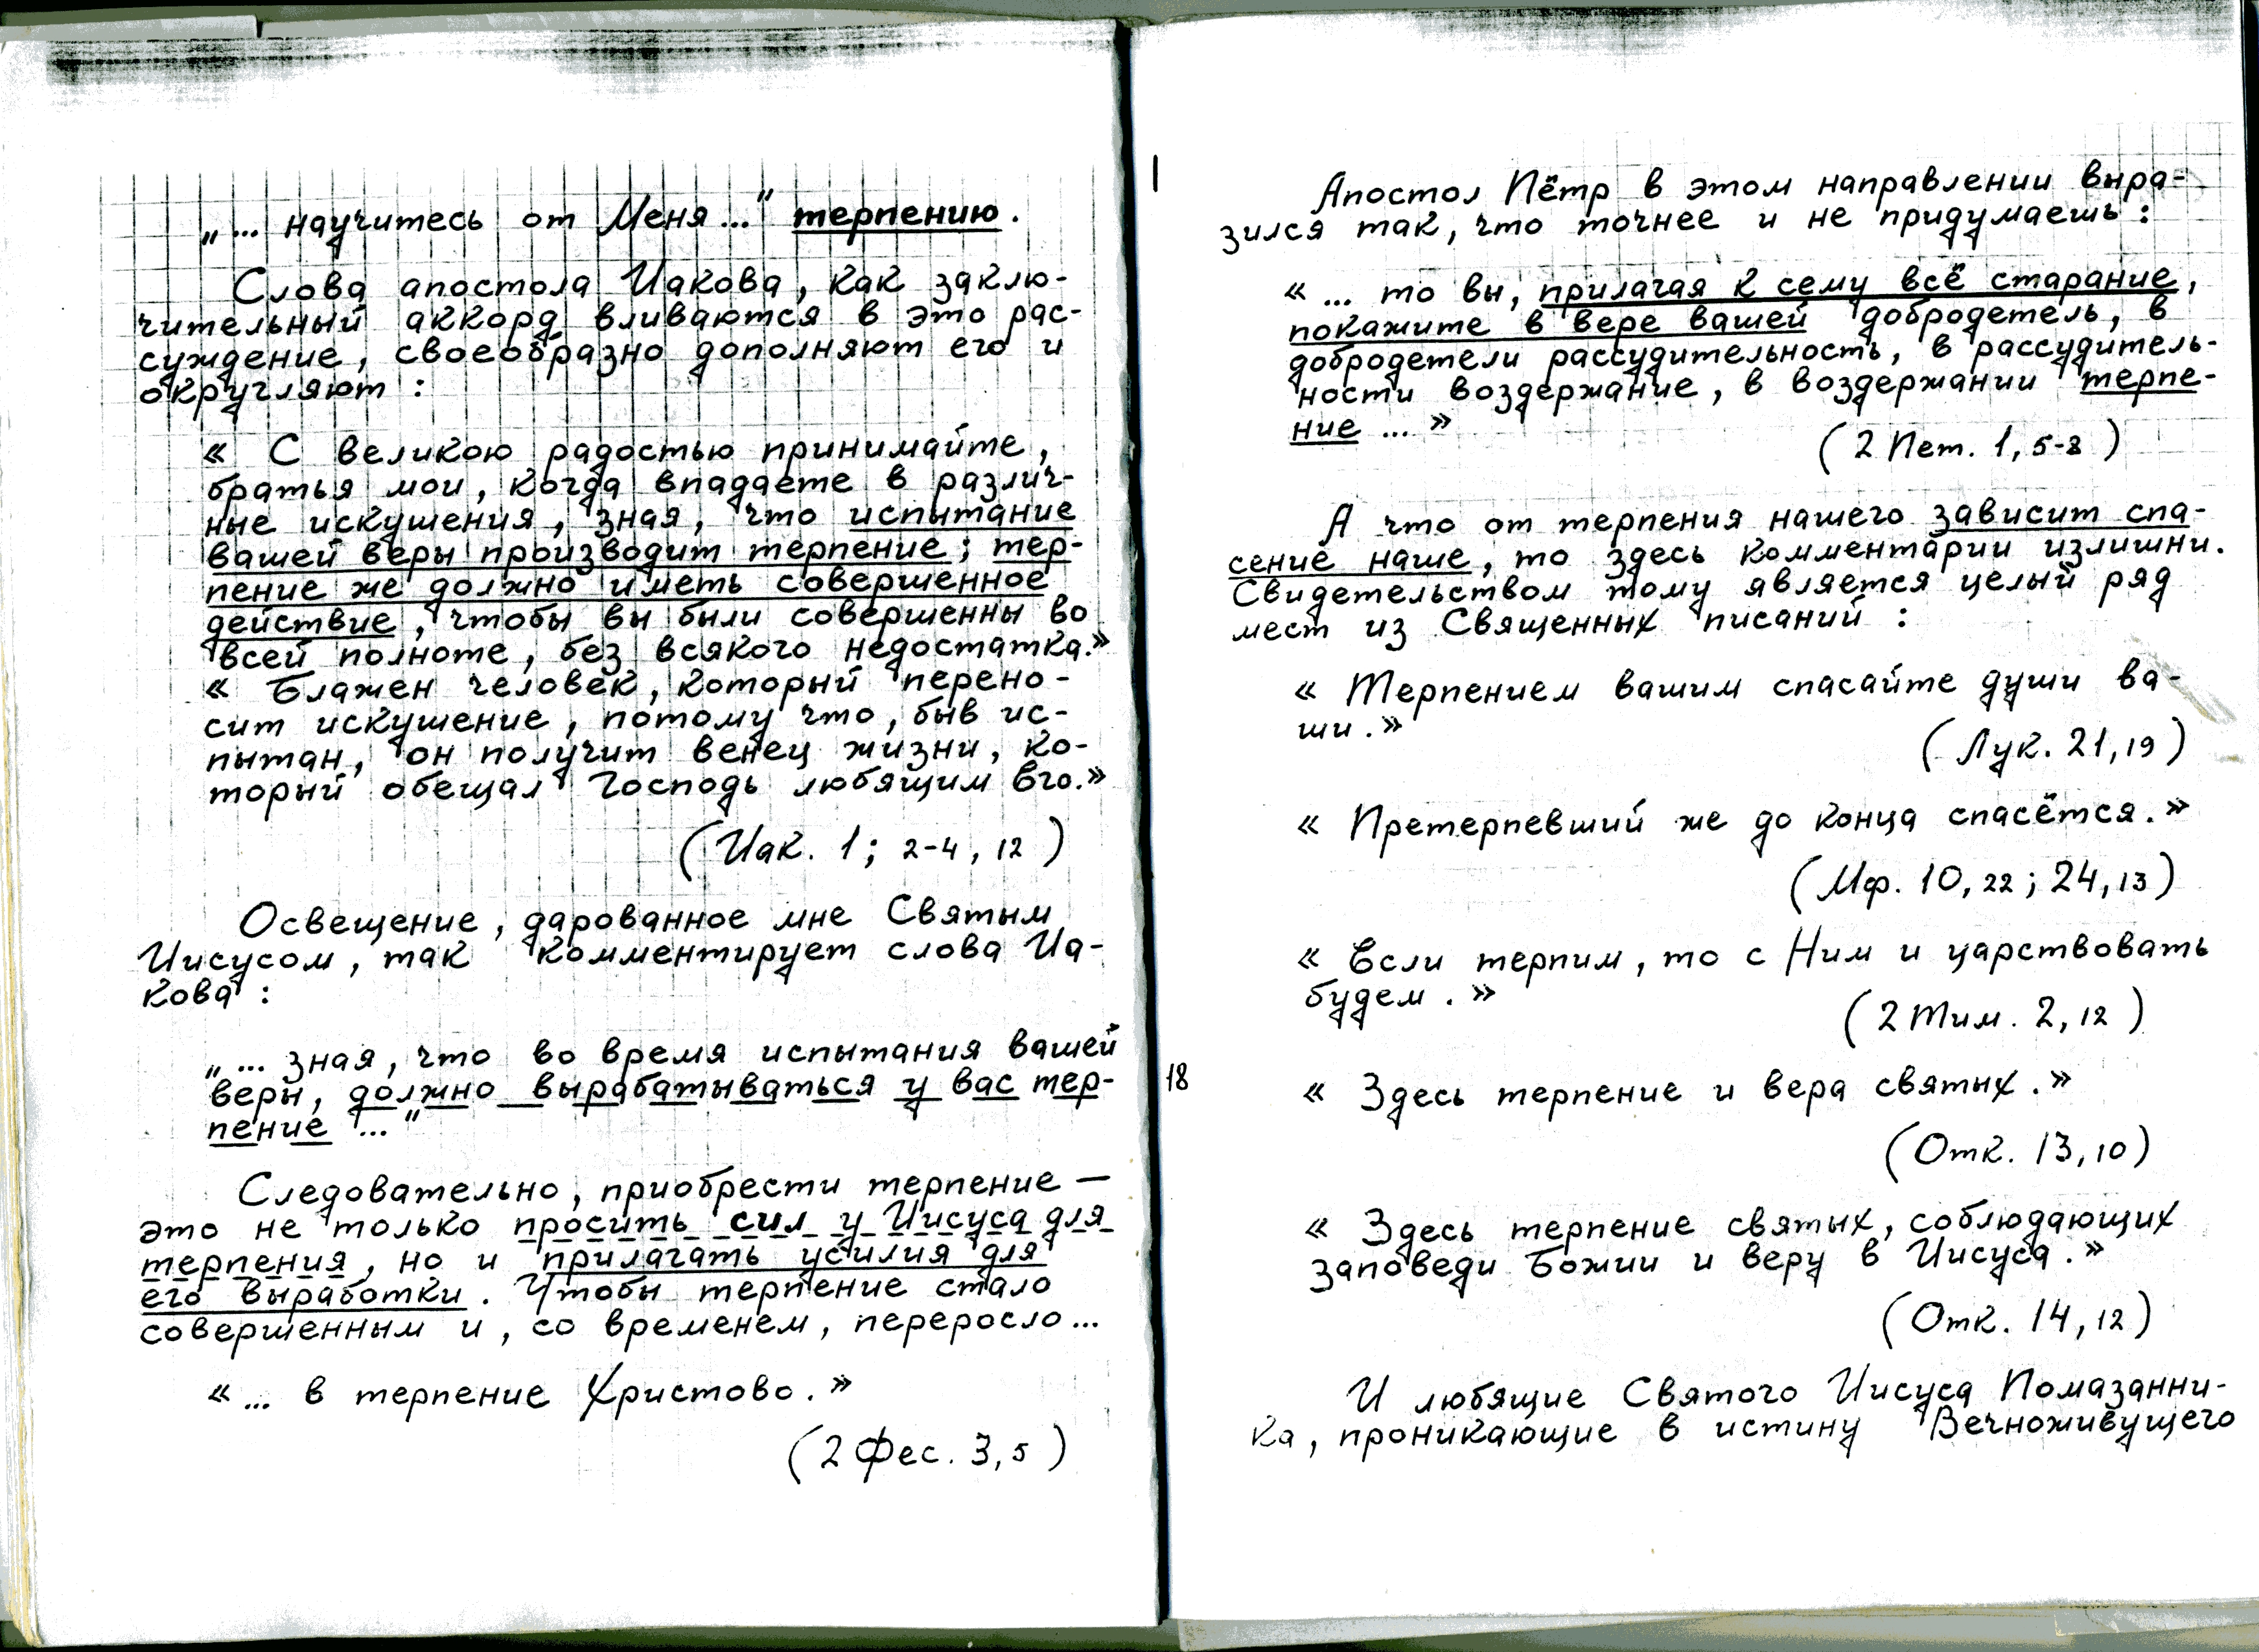 „... научитесь от Меня...“ терпению.
Слова апостола Иакова, как заклю-
чительный аккорд вливаются в это рас-
суждение, своеобразно дополняют его и
округляют :
« С великою радостью принимайте,
братья мои, когда впадаете в различ-
ные искушения, зная, что испытание
вашей веры производит терпение; тер-
пение же должно иметь совершенное
действие, чтобы вы были совершенны во
всей полноте, без всякого недостатка.»
« Блажен человек, который перено-
сит искушение, потому что, быв ис-
пытан, он получит венец жизни, ко-
торый обещал Господь любящим Его.»
( Иак. 1; 2-4, 12 )
Освещение, дарованное мне Святым
Иисусом, так комментирует слова Иа-
кова :
„... зная, что во время испытания вашей
веры, должно вырабатываться у вас тер-
пение ...“
Следовательно, приобрести терпение —
это не только просить сил у Иисуса для
терпения, но и прилагать усилия для
его выработки. Чтобы терпение стало
совершенным и, со временем, переросло...
« ... в терпение Христово. »
( 2 Фес. 3, 5 )
Апостол Пётр в этом направлении выра-
зился так, что точнее и не придумаешь :
« ... то вы, прилагая к сему всё старание,
покажите в вере вашей добродетель, в
добродетели рассудительность, в рассудитель-
ности воздержание, в воздержании терпе-
ние ... »
( 2 Пет. 1, 5-8 )
А что от терпения нашего зависит спа-
сение наше, то здесь комментарии излишни.
Свидетельством тому является целый ряд
мест из Священных писаний :
« Терпением вашим спасайте души ва-
ши. »
( Лук. 21, 19 )
« Претерпевший же до конца спасётся. »
( Мф. 10, 22 ; 24, 13 )
« Если терпим, то с Ним и царствовать
будем . »
( 2 Тим. 2, 12 )
18
« Здесь терпение и вера святых. »
( Отк. 13, 10 )
« Здесь терпение святых, соблюдающих
заповеди Божии и веру в Иисуса. »
( Отк. 14, 12 )
И любящие Святого Иисуса Помазанни-
ка, проникающие в истину Вечноживущего